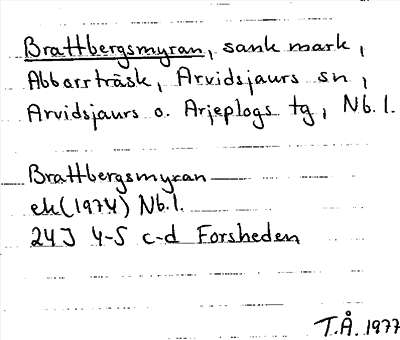 Brattbergsmyran, sank mark,
Abborrträsk, Arvidsjaurs sn,
Arvidsjaurs o. Arjeplogs tg, Nb.l.
Brattbergsmyran
ek(1974) Nb.l.
24J 4-5 c-d Forsheden
T.Å. 1977